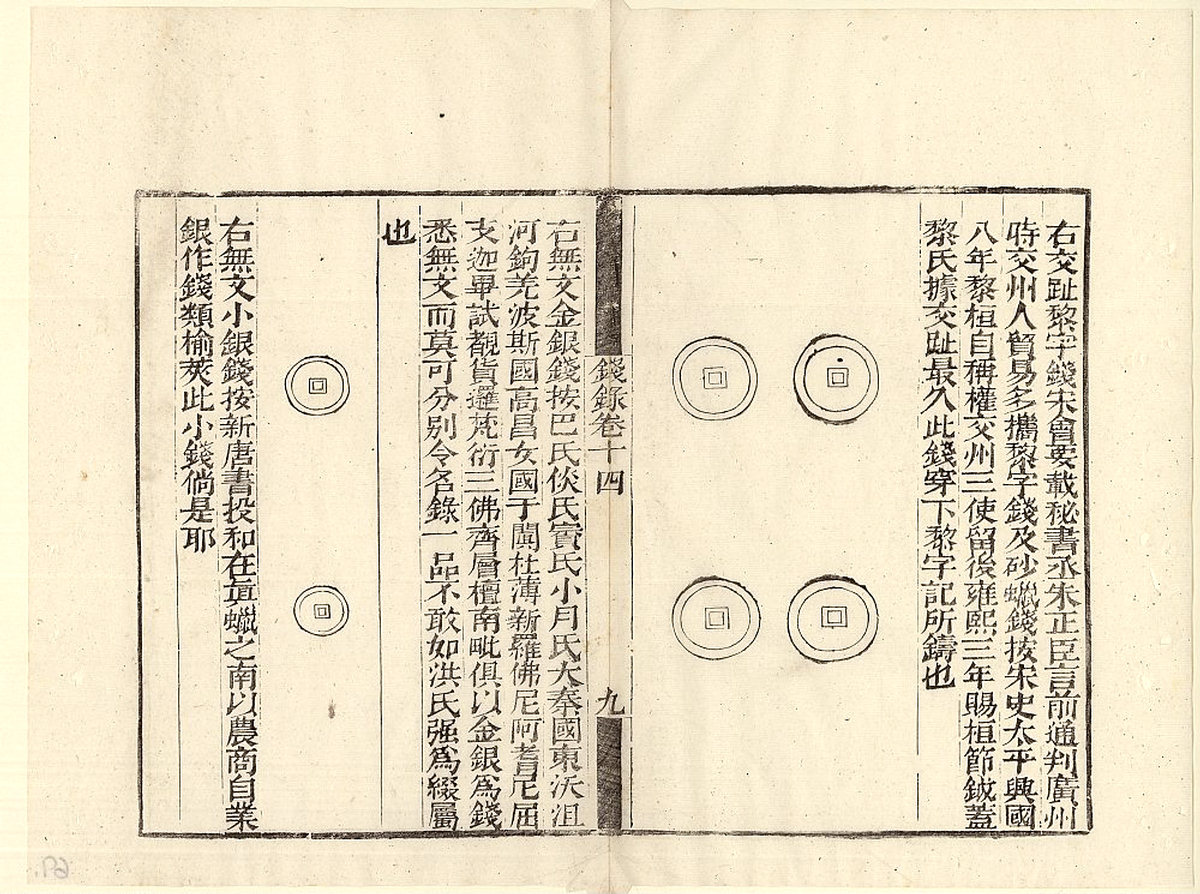 右交趾黎字錢宋會要載秘書丞朱正臣言前通判廣州
時交州人貿易多攜黎字錢及砂蠟錢按宋史太平興國
八年黎桓自稱權交州三使留後雍熙三年賜桓節鉞蓋
黎氏據交趾最久此錢穿下黎字記所鑄也
錢錄卷十四
九
右無文金銀錢按巴氏倓氏賨氏小月氏大秦國東沃沮
河鉤羌波斯國高昌女國于闐杜薄新羅佛尼阿耆尼屈
支迦畢試覩貨邏梵衍三佛齊層檀南毗俱以金銀為錢
悉無文而莫可分别令名錄一品不敢如洪氏强為綴屬
也
右無文小銀錢按新唐書投和在真蠟之南以農商自業
銀作錢類榆莢此小錢倘是耶